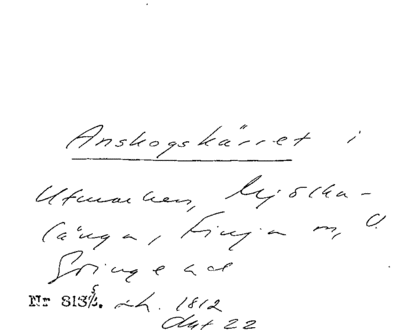 Anskogskärret i
Utmarken, Mjölka-
långa, Finja sn, V.
Göinge hd
Nr 813⅚. sk. 1812
Akt 22